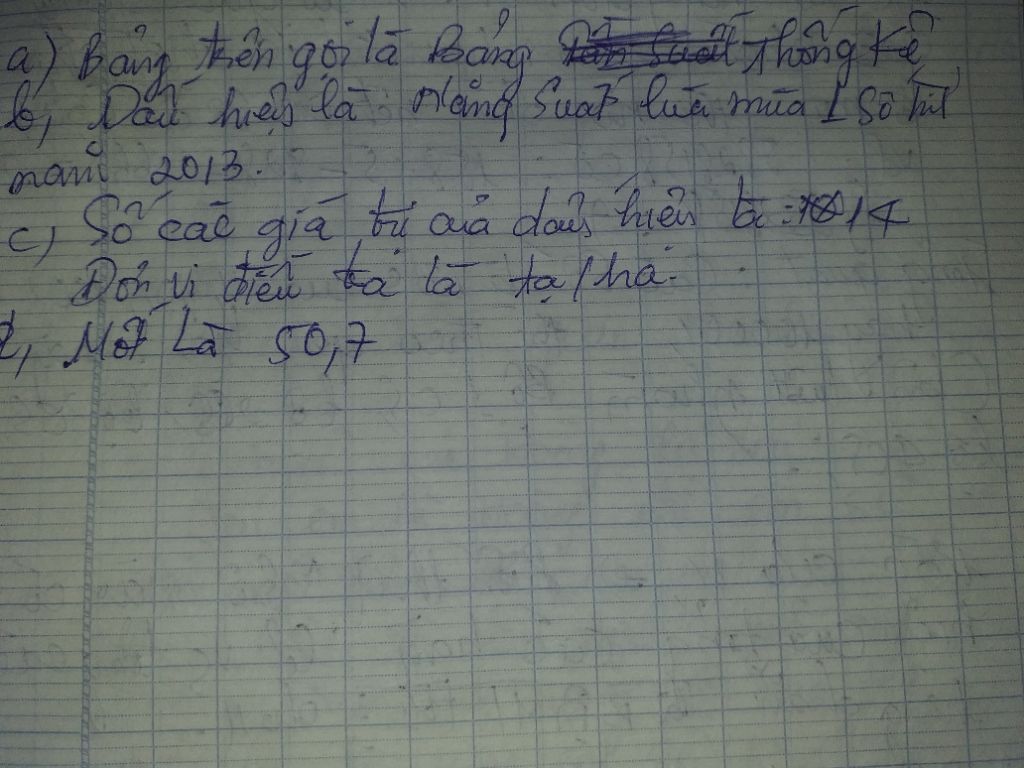 a) Bảng trên gọi là Bảng Thống Kê
b, Dấu hiệu là Năng Suất lúa mùa 1 Số tỉnh
năm 2013.
c) Số các giá trị của dấu hiệu là: 14
Đơn vị điều tra là tạ/ha.
d, Mốt Là 50,7